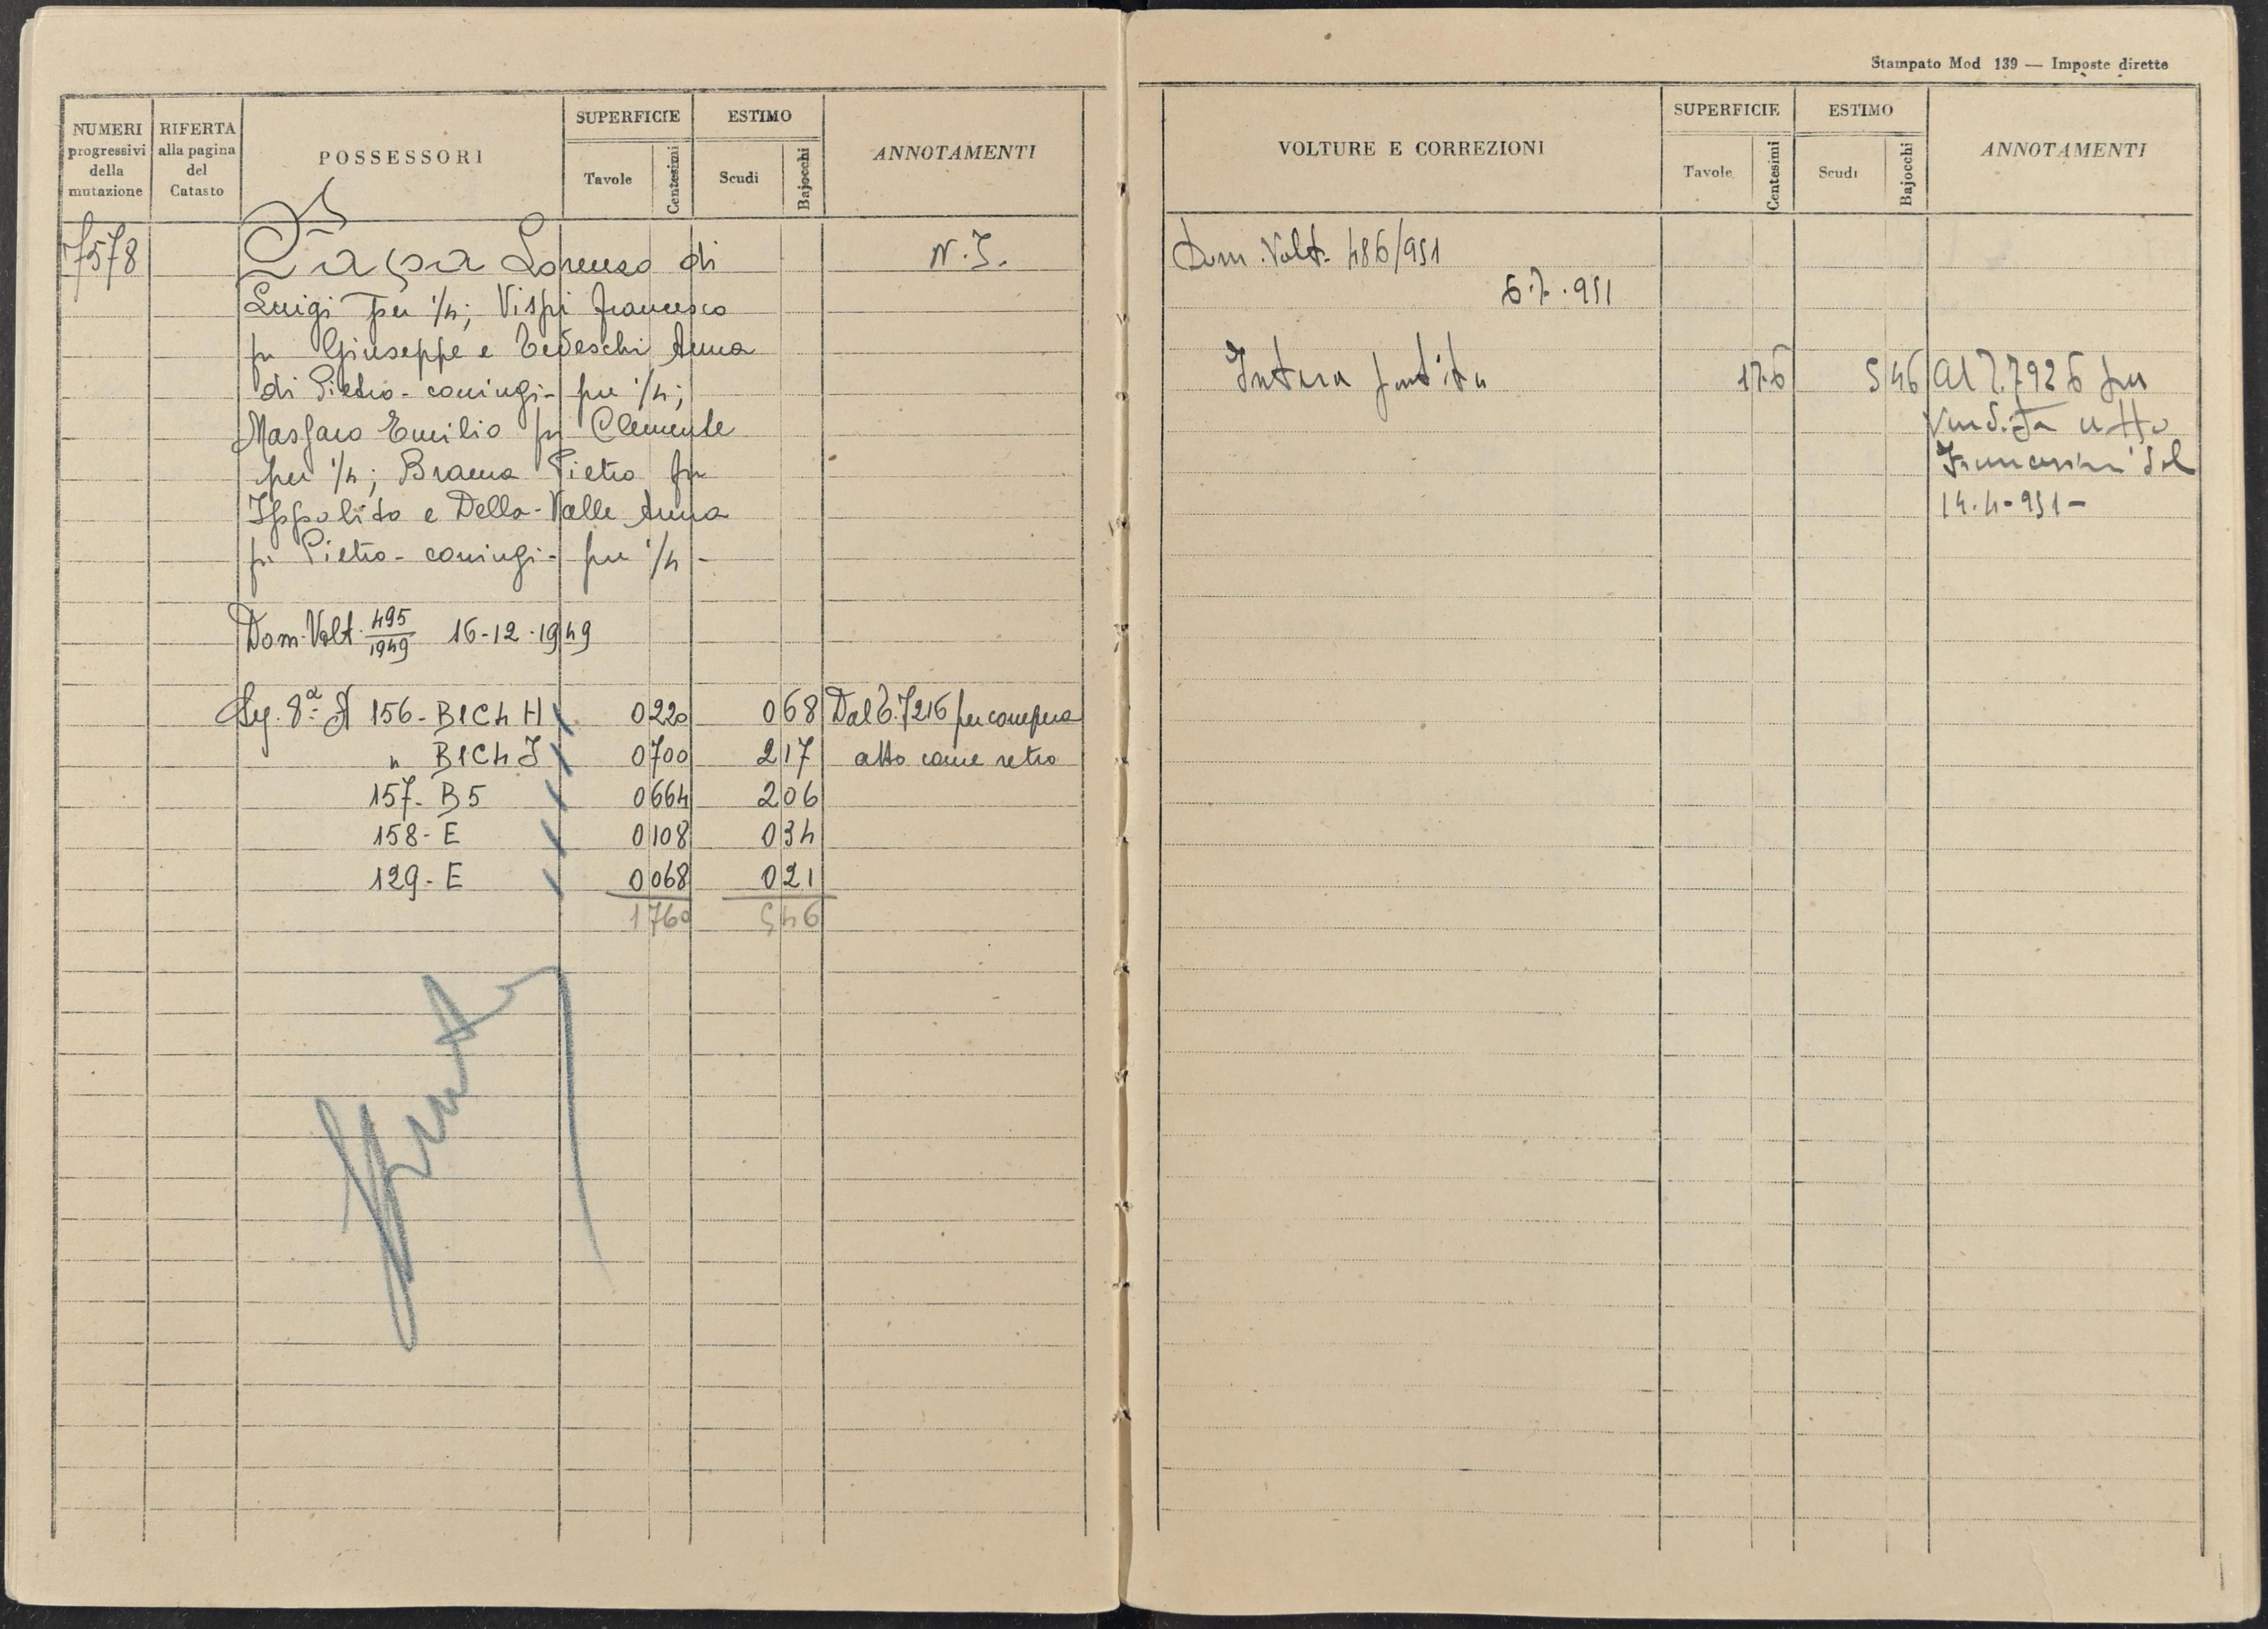 NUMERI progressivi della mutazione
RIFERTA alla pagina del Catasto
POSSESSORI
SUPERFICIE
Tavole
Centesimi
ESTIMO
Scudi
Bajocchi
ANNOTAMENTI
7578
Lorenzo di
N. I.
Luigi per 1/4; Vispi Francesco
fu Giuseppe e Tedeschi Anna
di Pietro - coniugi - per 1/4;
Emilio fu Clemente
per 1/4; Brama Pietro fu
Ippolito e Della-Valle Anna
fu Pietro - coniugi - per 1/4 -
Dom. Volt. 495/1949 16-12-1949
8ª 156 - B1C4 H 0 220 0 68 Dal T. 7216 per compera
" B1C4 I 0 700 2 17 atto come retro
157 - B5 0 664 2 06
158 - E 0 108 0 34
129 - E 0 068 0 21
1 760 5 46
Stampato Mod 139 — Imposte dirette
VOLTURE E CORREZIONI
SUPERFICIE
Tavole
Centesimi
ESTIMO
Scudi
Bajocchi
ANNOTAMENTI
Dom. Volt. 486/951
6.7.951
Intera partita 17.6 5 46 Al 7.7926 per
vendita atto
del
14.4-951-